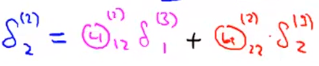 δ₂⁽²⁾ = ω₁₂⁽²⁾ δ₁⁽³⁾ + ω₂₂⁽²⁾ · δ₂⁽³⁾